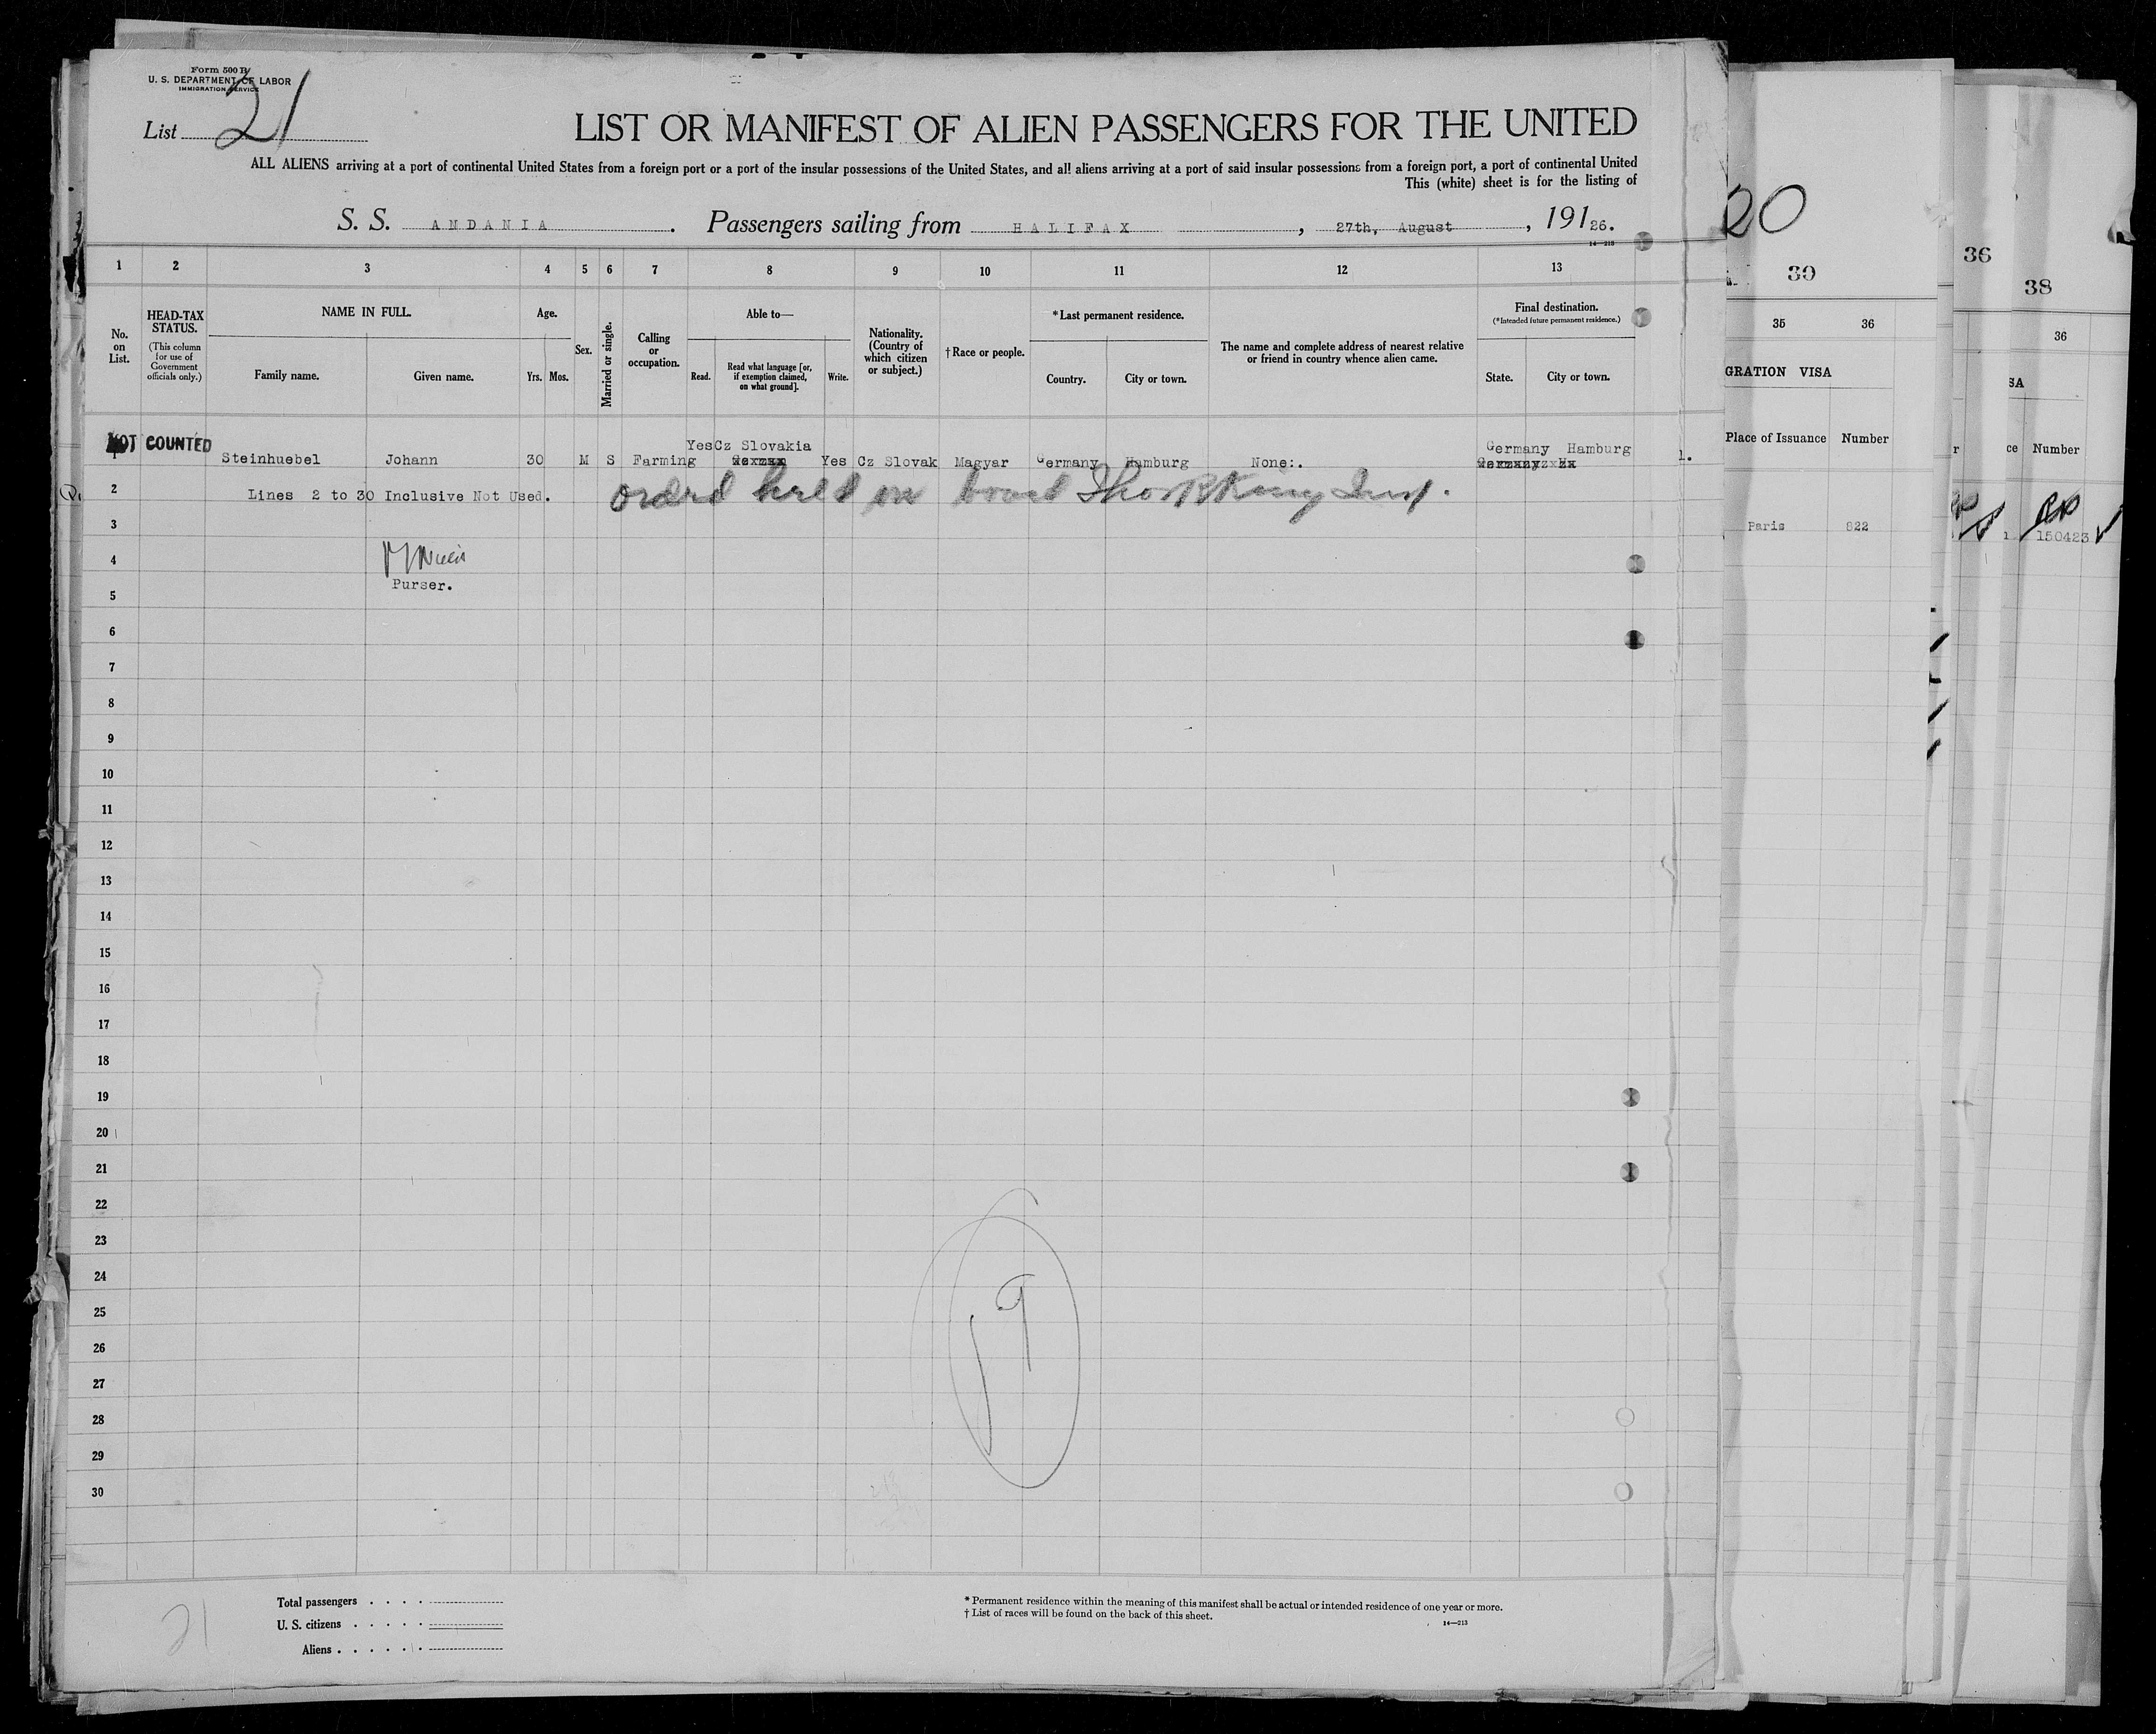 Form 500 B
U. S. DEPARTMENT OF LABOR
IMMIGRATION SERVICE
List 21
LIST OR MANIFEST OF ALIEN PASSENGERS FOR THE UNITED
ALL ALIENS arriving at a port of continental United States from a foreign port or a port of the insular possessions of the United States, and all aliens arriving at a port of said insular possessions from a foreign port, a port of continental United
This (white) sheet is for the listing of
S. S. ANDANIA. Passengers sailing from HALIFAX, 27th, August, 19126.
14—213
1 2 3 4 5 6 7 8 9 10 11 12 13
No. on List.
HEAD-TAX STATUS.
(This column for use of Government officials only.)
NAME IN FULL.
Family name. Given name.
Age.
Yrs. Mos.
Sex.
Married or single.
Calling or occupation.
Able to—
Read. Read what language [or, if exemption claimed, on what ground]. Write.
Nationality. (Country of which citizen or subject.)
†Race or people.
*Last permanent residence.
Country. City or town.
The name and complete address of nearest relative or friend in country whence alien came.
Final destination.
(*Intended future permanent residence.)
State. City or town.
NOT COUNTED
Yes Cz Slovakia Germany Hamburg
1 Steinhuebel Johann 30 M S Farming Yes Cz Slovak Magyar Germany Hamburg None:. 1.
2 Lines 2 to 30 Inclusive Not Used. held on board
3
4
Purser.
5
6
7
8
9
10
11
12
13
14
15
16
17
18
19
20
21
22
23
24
25
26
27
28
29
30
Total passengers
U. S. citizens
Aliens
21
* Permanent residence within the meaning of this manifest shall be actual or intended residence of one year or more.
† List of races will be found on the back of this sheet.
14—213
20
39
35 36
GRATION VISA
Place of Issuance Number
Paris 822
36
38
36
SA
ce Number
150423